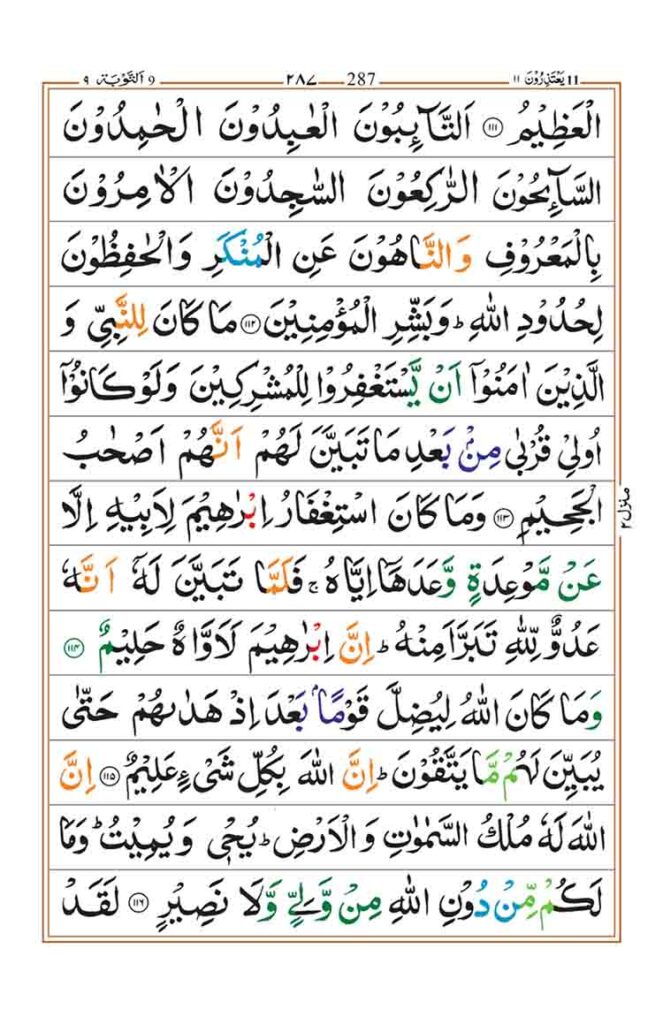 يَعْتَذِرُوْنَ ١١ 11 287 ٢٨٧ 9 اَلتَّوْبَة ٩
الْعَظِيْمُ ۝١١١ اَلتَّآئِبُوْنَ الْعٰبِدُوْنَ الْحٰمِدُوْنَ
السَّآئِحُوْنَ الرّٰكِعُوْنَ السّٰجِدُوْنَ الْاٰمِرُوْنَ
بِالْمَعْرُوْفِ وَالنَّاهُوْنَ عَنِ الْمُنْكَرِ وَالْحٰفِظُوْنَ
لِحُدُوْدِ اللّٰهِ ؕ وَبَشِّرِ الْمُؤْمِنِيْنَ ۝١١٢ مَا كَانَ لِلنَّبِيِّ وَ
الَّذِيْنَ اٰمَنُوْۤا اَنْ يَّسْتَغْفِرُوْا لِلْمُشْرِكِيْنَ وَلَوْ كَانُوْۤا
اُولِيْ قُرْبٰى مِنْۢ بَعْدِ مَا تَبَيَّنَ لَهُمْ اَنَّهُمْ اَصْحٰبُ
الْجَحِيْمِ ۝١١٣ وَمَا كَانَ اسْتِغْفَارُ اِبْرٰهِيْمَ لِاَبِيْهِ اِلَّا
عَنْ مَّوْعِدَةٍ وَّعَدَهَاۤ اِيَّاهُ ۚ فَلَمَّا تَبَيَّنَ لَهٗۤ اَنَّهٗ
عَدُوٌّ لِّلّٰهِ تَبَرَّاَ مِنْهُ ؕ اِنَّ اِبْرٰهِيْمَ لَاَوَّاهٌ حَلِيْمٌ ۝١١٤
وَمَا كَانَ اللّٰهُ لِيُضِلَّ قَوْمًۢا بَعْدَ اِذْ هَدٰىهُمْ حَتّٰى
يُبَيِّنَ لَهُمْ مَّا يَتَّقُوْنَ ؕ اِنَّ اللّٰهَ بِكُلِّ شَيْءٍ عَلِيْمٌ ۝١١٥ اِنَّ
اللّٰهَ لَهٗ مُلْكُ السَّمٰوٰتِ وَالْاَرْضِ ؕ يُحْيٖ وَيُمِيْتُ ؕ وَمَا
لَكُمْ مِّنْ دُوْنِ اللّٰهِ مِنْ وَّلِيٍّ وَّلَا نَصِيْرٍ ۝١١٦ لَقَدْ
منزل ٢